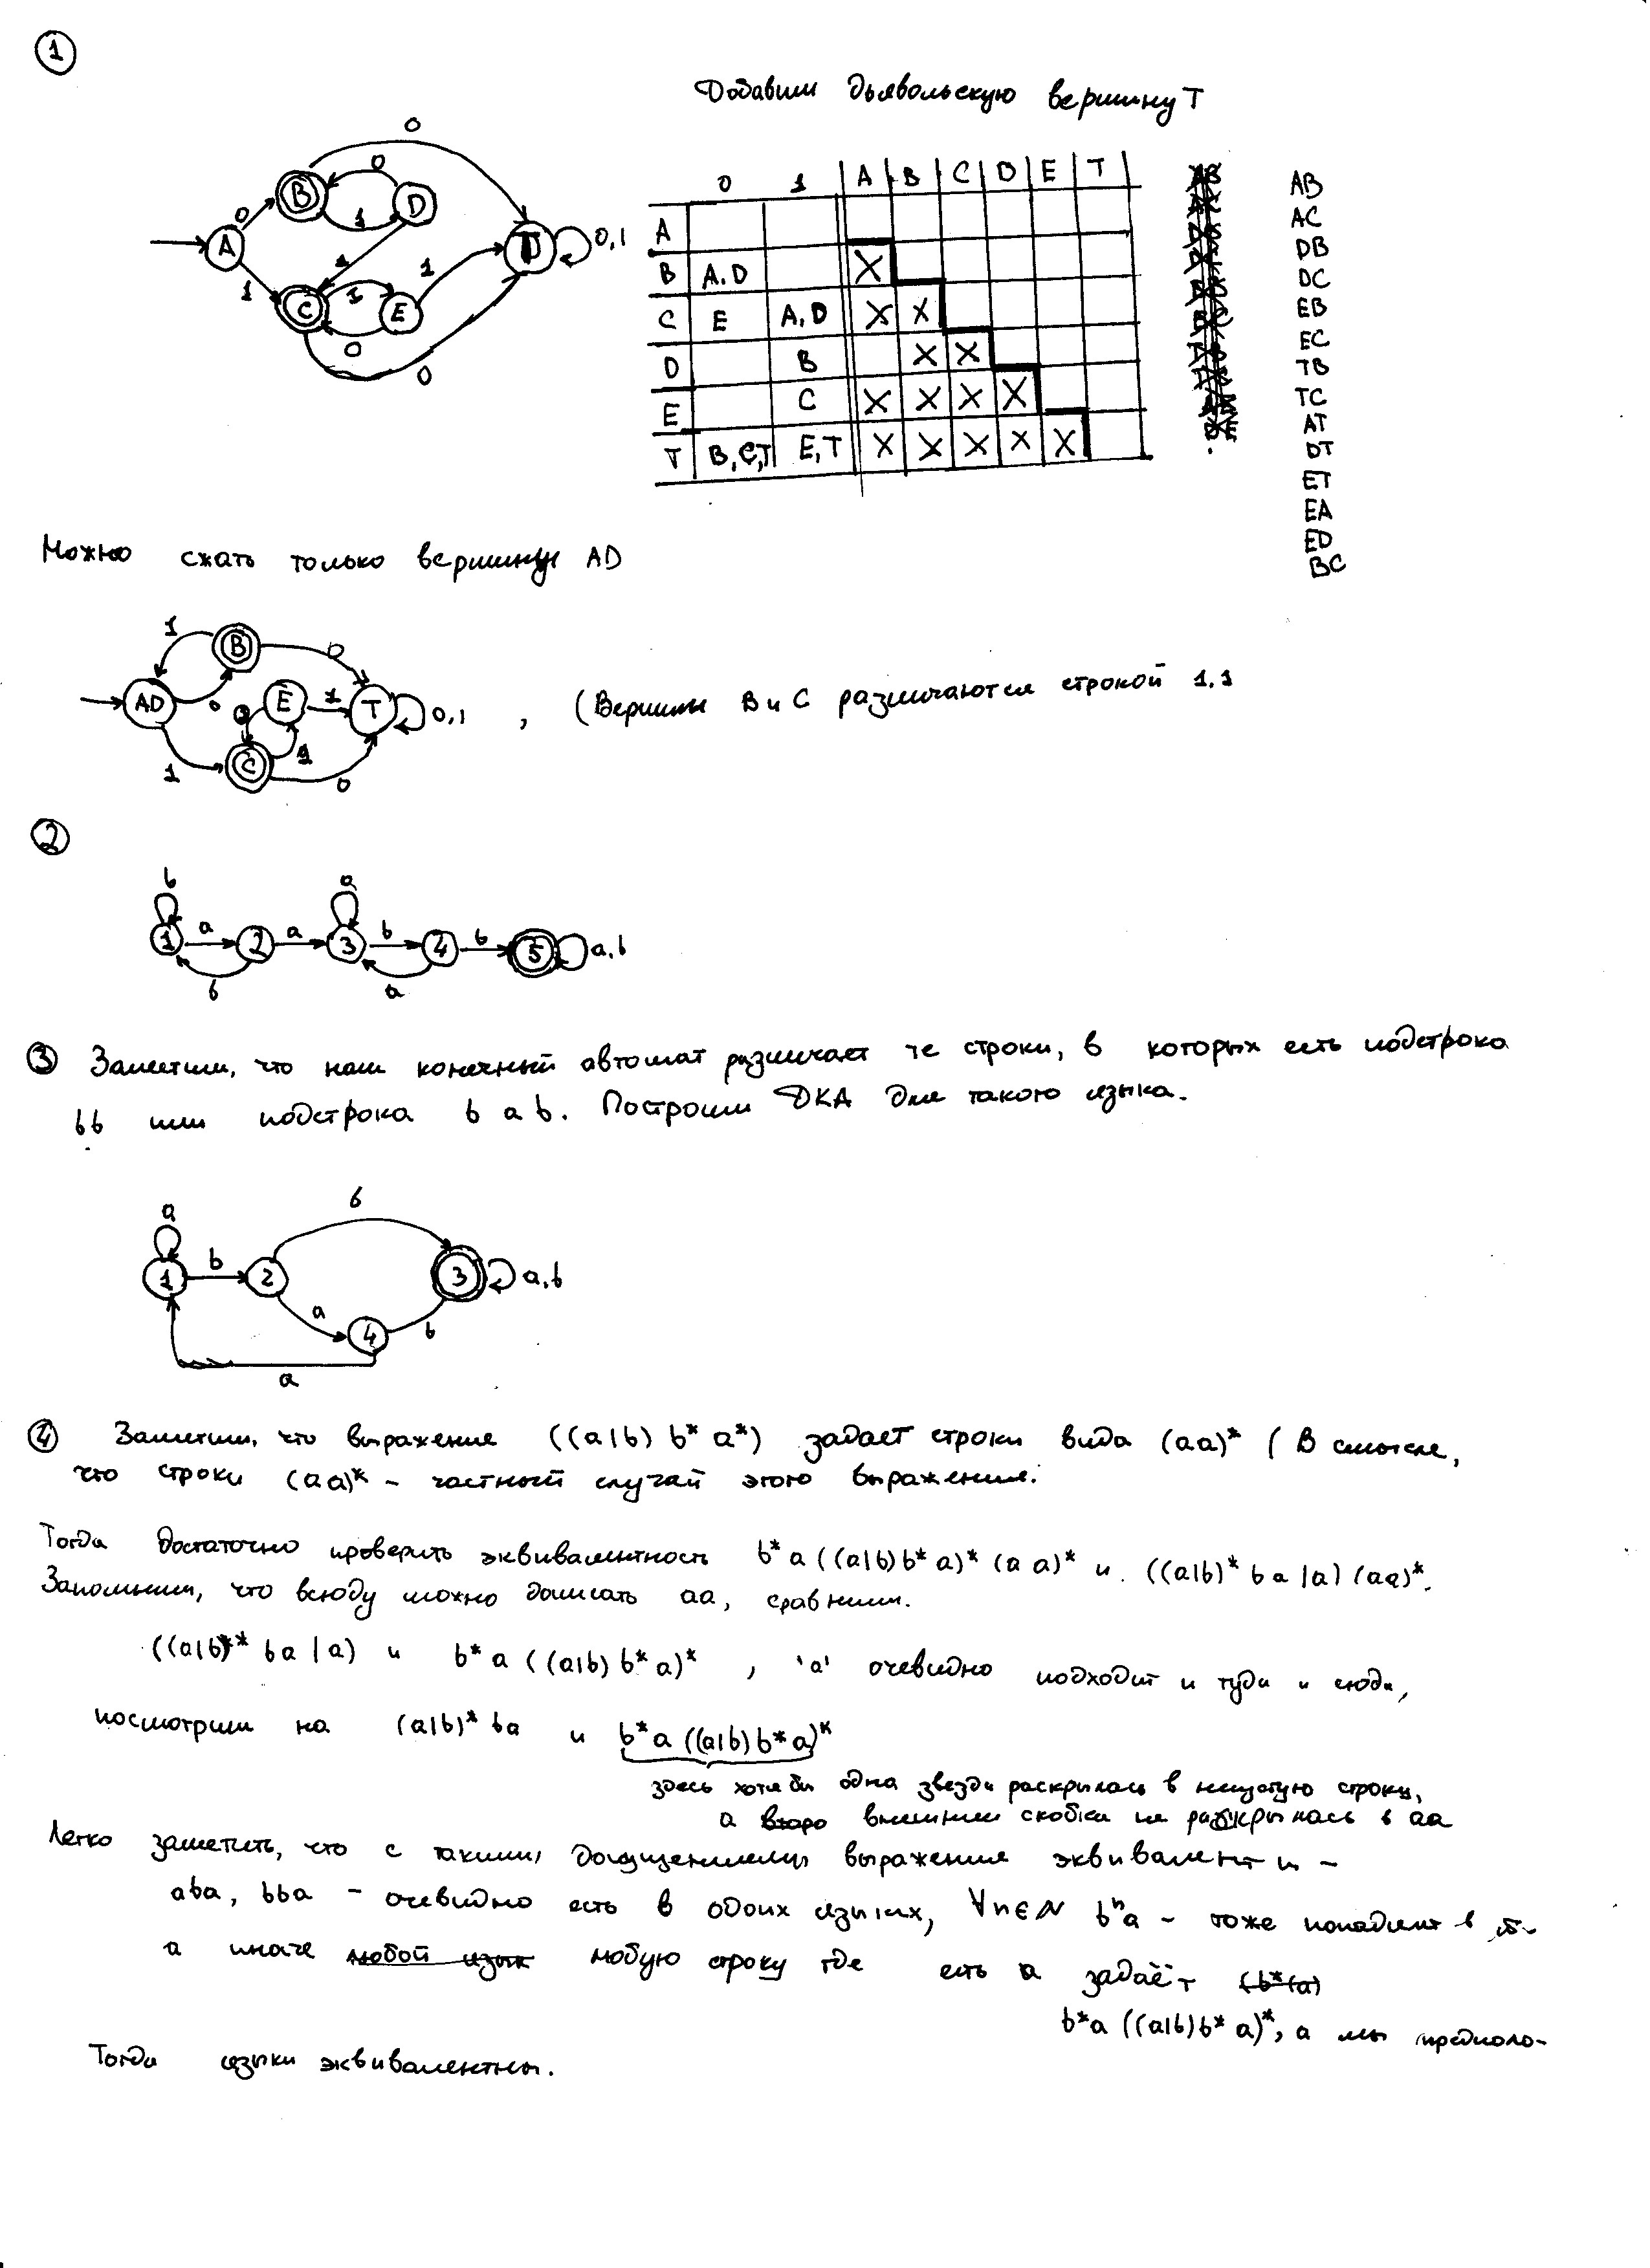 1
Добавим дьявольскую вершину T
0 1 A B C D E T
A
B A,D X
C E A,D X X
D B X X
E C X X X X
T B,C,T E,T X X X X X
AB
AC
DB
DC
EB
EC
TB
TC
AT
DT
ET
EA
ED
BC
A B D C E T
0 0 1 1 1 1 1 0 0 0 0,1
Можно сжать только вершины AD
AD B E T C
1 0 0 1 0 1 1 0 0,1
, (Вершины B и C различаются строкой 1,1
2
b a a b b a,b
1 2 3 4 5
b a a
3 Заметим, что наш конечный автомат различает те строки, в которых есть подстрока
bb или подстрока b a b. Построим ДКА для такого языка.
b
a b a,b
1 2 3
a 4 b
a
4 Заметим, что выражение ((a|b) b* a*) задает строки вида (aa)* ( В смысле,
что строки (aa)* - частный случай этого выражения.
Тогда достаточно проверить эквивалентность b* a ((a|b) b* a)* (a a)* и ((a|b)* ba |a) (aa)*.
Запомним, что всюду можно дописать aa, сравним.
((a|b)** ba | a) и b* a ((a|b) b* a)* , 'a' очевидно подходит и туда и сюда,
посмотрим на (a|b)* ba и b* a ((a|b) b* a)*
здесь хотя бы одна звезда раскрылась в непустую строку,
а внешняя скобка не раскрылась в aa
Легко заметить, что с такими допущениями выражения эквивалентны -
aba, bba - очевидно есть в обоих языках, ∀n∈N bⁿa - тоже попадает в
а иначе любую строку где есть a задаёт
b*a ((a|b) b* a)*, а мы предполо-
Тогда языки эквивалентны.